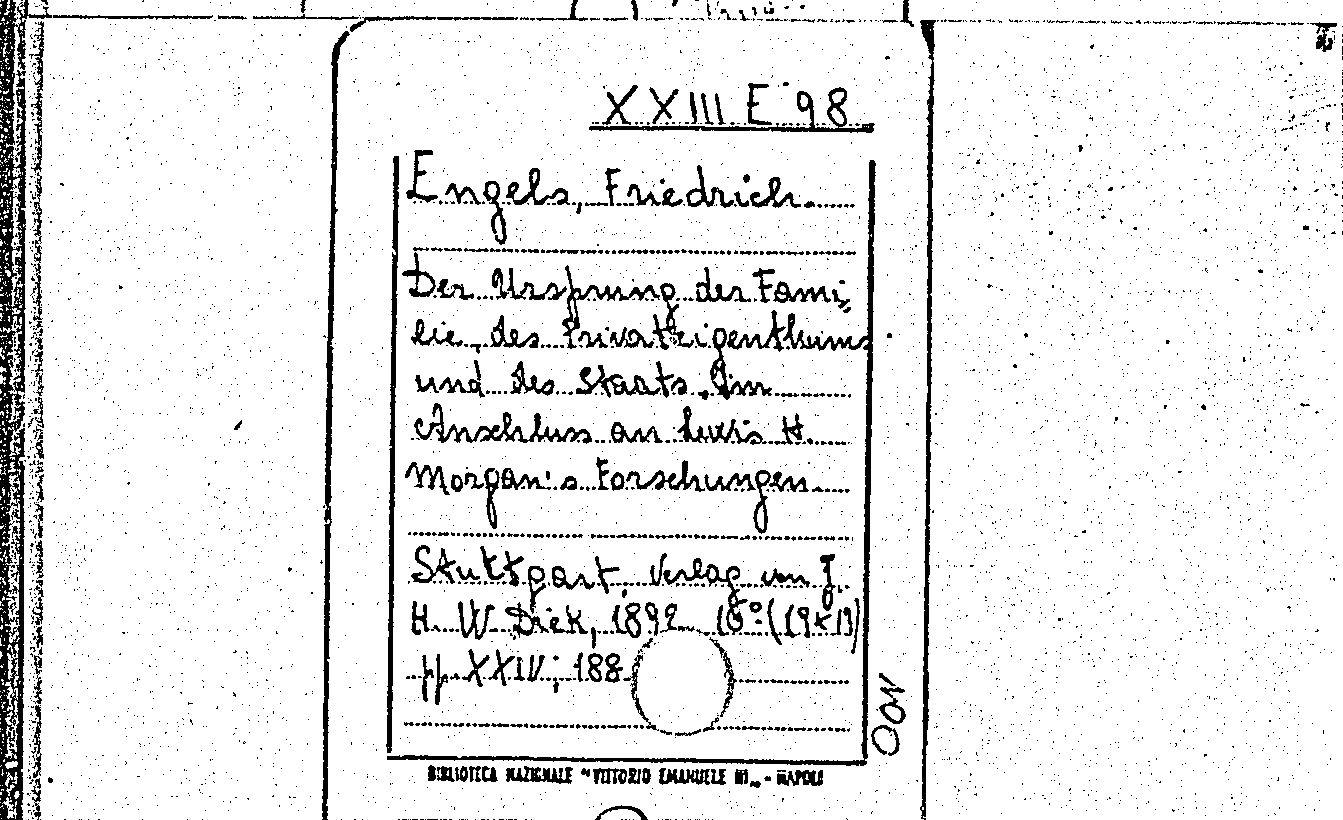 XXIII E 98
Engels, Friedrich.
Der Ursprung der Fami-
lie, des Privateigenthums
und des Staats. Im
Anschluss an Lewis H.
Morgan's Forschungen.
Stuttgart, Verlag von J.
H. W. Diek, 1892 16° (19x13)
pp. XXIV; 188
BIBLIOTECA NAZIONALE "VITTORIO EMANUELE III„ - NAPOLI